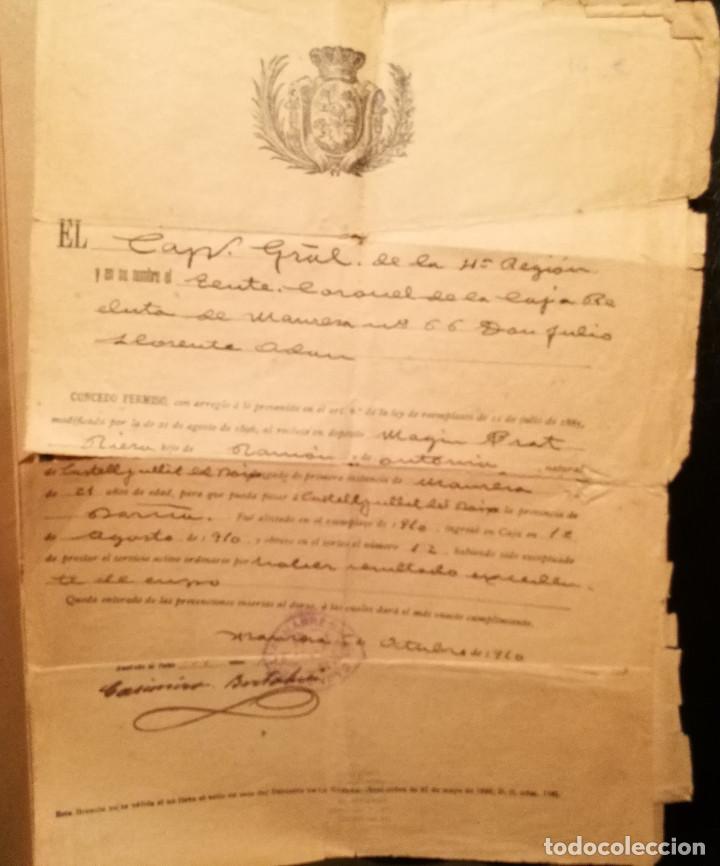 EL Cap. Gral. de la 4ª Región
y en su nombre el Tente. Coronel de la Caja Re
cluta de Manresa nº 66 Don Julio
Llorente Adan
CONCEDO PERMISO, con arreglo á lo prevenido en el art. 9.º de la ley de reemplazos de 11 de julio de 1885,
modificada por la de 21 de agosto de 1896, al recluta en depósito Magin Prat
Riera hijo de Ramón y de Antonia, natural
de Castellfullit del Boix juzgado de primera instancia de Manresa
de 21 años de edad, para que pueda pasar á Castellfullit del Boix provincia de
Barna. Fué alistado en el reemplazo de 1910, ingresó en Caja en 12
de Agosto de 1910 y obtuvo en el sorteo el número 12 habiendo sido exceptuado
de prestar el servicio activo ordinario por haber resultado exceden
te de cupo
Queda enterado de las prevenciones insertas al dorso, á las cuales dará el más exacto cumplimiento.
Manresa de Octubre de 1910
Casimiro
Esta licencia no es válida si no lleva el sello en seco del Depósito de la Guerra. Real orden de 27 de mayo de
todocoleccion